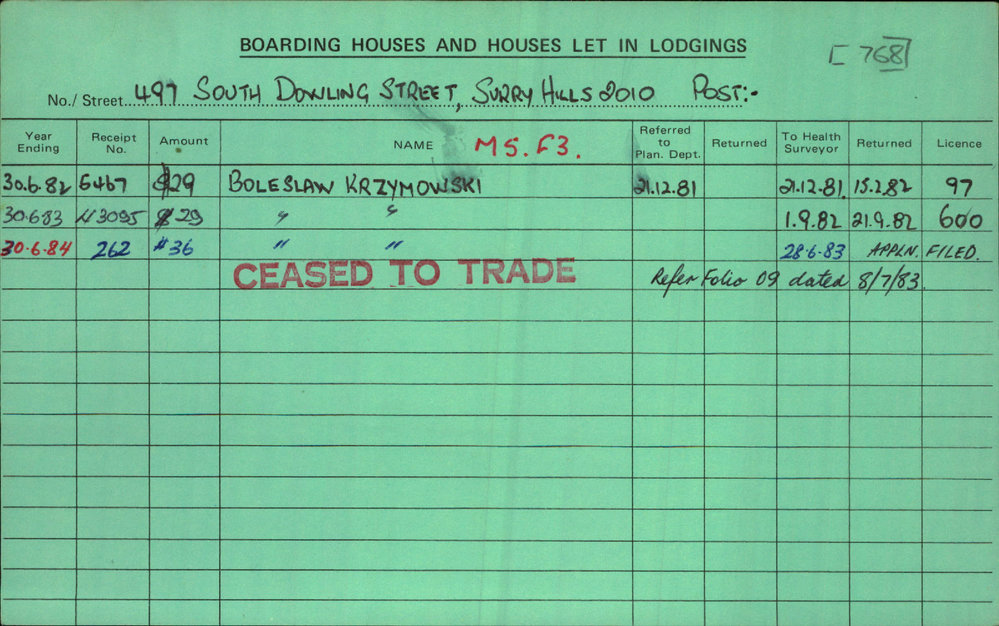 BOARDING HOUSES AND HOUSES LET IN LODGINGS
[768]
No./ Street 497 SOUTH DOWLING STREET, SURRY HILLS 2010 POST:-
Year Ending Receipt No. Amount NAME MS. F3. Referred to Plan. Dept. Returned To Health Surveyor Returned Licence
30.6.82 6467 $29 BOLESLAW KRZYMOWSKI 21.12.81 21.12.81. 15.2.82 97
30.6.83 3095 $29 " " 1.9.82 21.9.82 600
30.6.84 262 $36 " " 28.6.83 APPLN. FILED.
CEASED TO TRADE Refer Folio 09 dated 8/7/83.